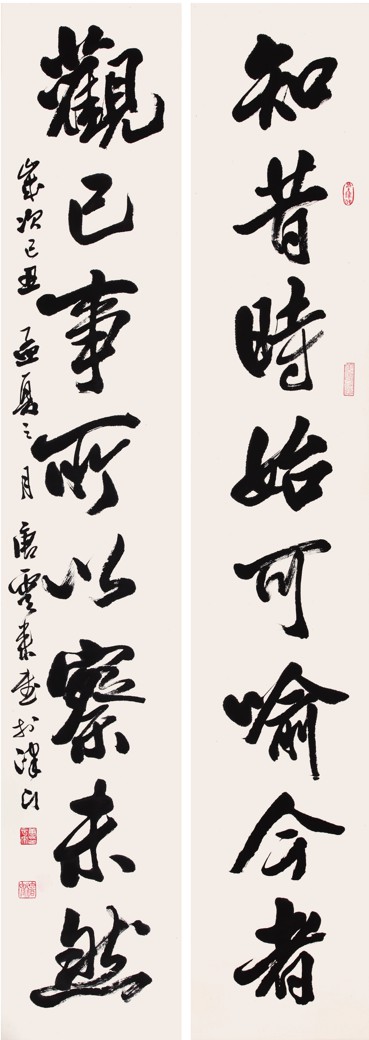 知昔時始可喻今者
觀已事所以察未然
歲次己丑孟夏之月唐雲来書於津门